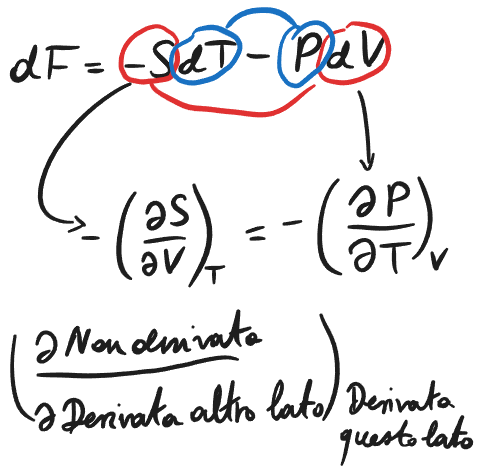 dF = -SdT - PdV
- (∂S/∂V)_T = - (∂P/∂T)_V
(∂ Non derivata
∂ Derivata altro lato) Derivata
questo lato